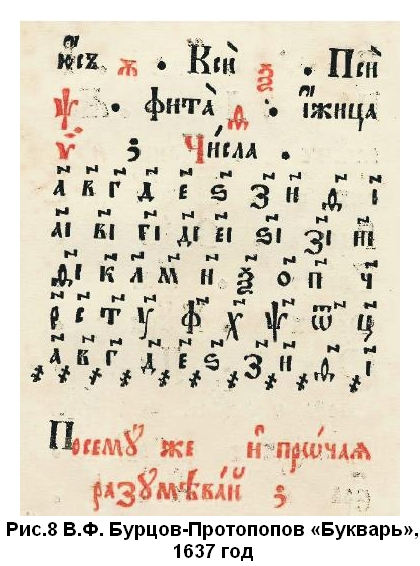 ю҆́съ ѫ . Ксѝ ѯ . Псѝ
ѱ . фита̀ ѳ : і҆́жица
ѵ҆́ ; Чи́сла .
а҃ в҃ г҃ д҃ е҃ ѕ҃ з҃ и҃ ѳ҃ і҃
аі҃ ві҃ гі҃ ді҃ еі҃ ѕі҃ зі҃ иі҃
ѳі҃ к҃ л҃ м҃ н҃ ѯ҃ о҃ п҃ ч҃
р҃ с҃ т҃ у҃ ф҃ х҃ ѱ҃ ѿ҃ ц҃
҂а҃ ҂в҃ ҂г҃ ҂д҃ ҂е҃ ҂ѕ҃ ҂з҃ ҂и҃ ҂ѳ҃ ҂і҃
Посемꙋ̀ же и҆ прѡ́чаѧ
разꙋмѣва́й ;
Рис.8 В.Ф. Бурцов-Протопопов «Букварь»,
1637 год